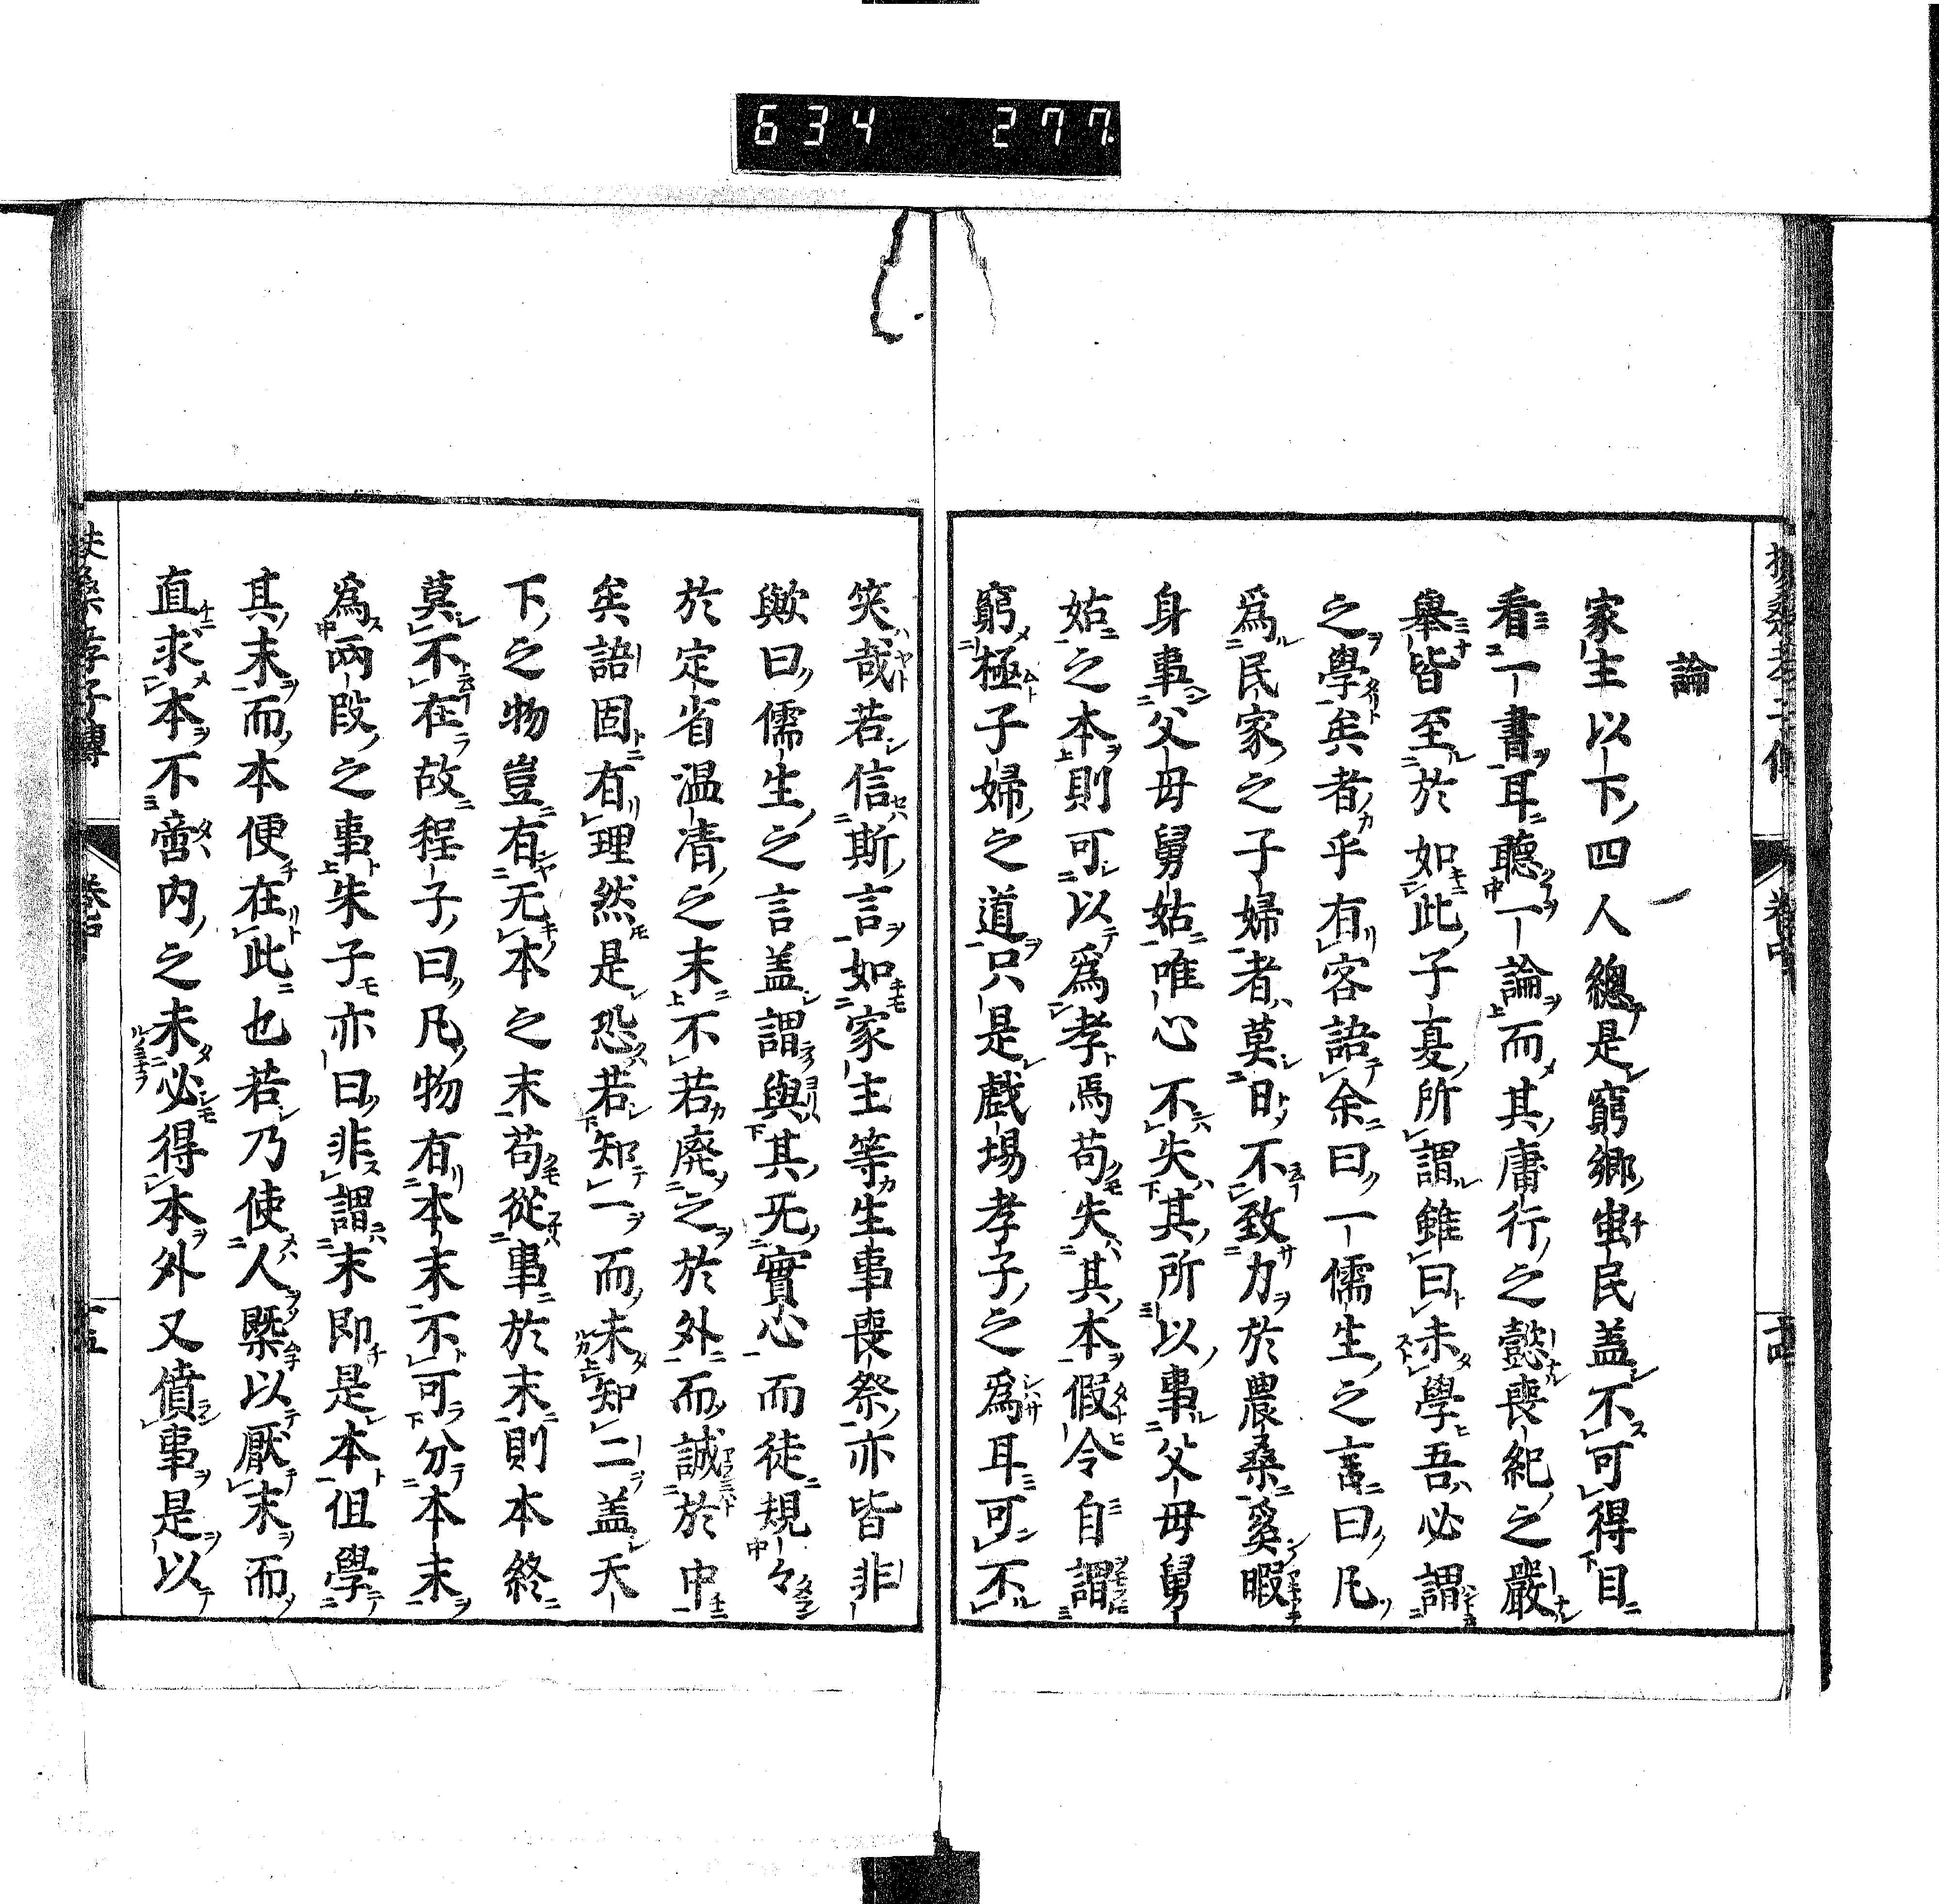 634 277
論
家主以下四人總是窮鄉蚩民盖不可得目
看一書耳聽一論而其庸行之懿喪紀之嚴
舉皆至於如此子夏所謂雖曰未學吾必謂
之學矣者乎有客語余曰一儒生之言曰凡
爲民家之子婦者莫曰不致力於農桑奚暇
身事父母舅姑唯心不失其所以事父母舅
姑之本則可以爲孝焉苟失其本假令自謂
窮極子婦之道只是戲場孝子之爲耳可不
笑哉若信斯言如家主等生事喪祭亦皆非
歟曰儒生之言盖謂與其旡實心而徒規々
於定省温凊之末不若廃之於外而誠於中
矣語固有理然是恐若知一而未知二盖天
下之物豈有无本之末苟從事於末則本終
莫不在故程子曰凡物有本末不可分本末
爲兩段之事朱子亦曰非謂末即是本但學
其末而本便在此也若乃使人槩以厭末而
直求本不啻内之未必得本外又僨事是以
扶桑孝子傳